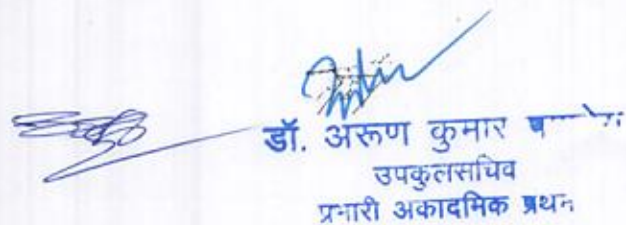 डॉ. अरूण कुमार
उपकुलसचिव
प्रभारी अकादमिक प्रथम